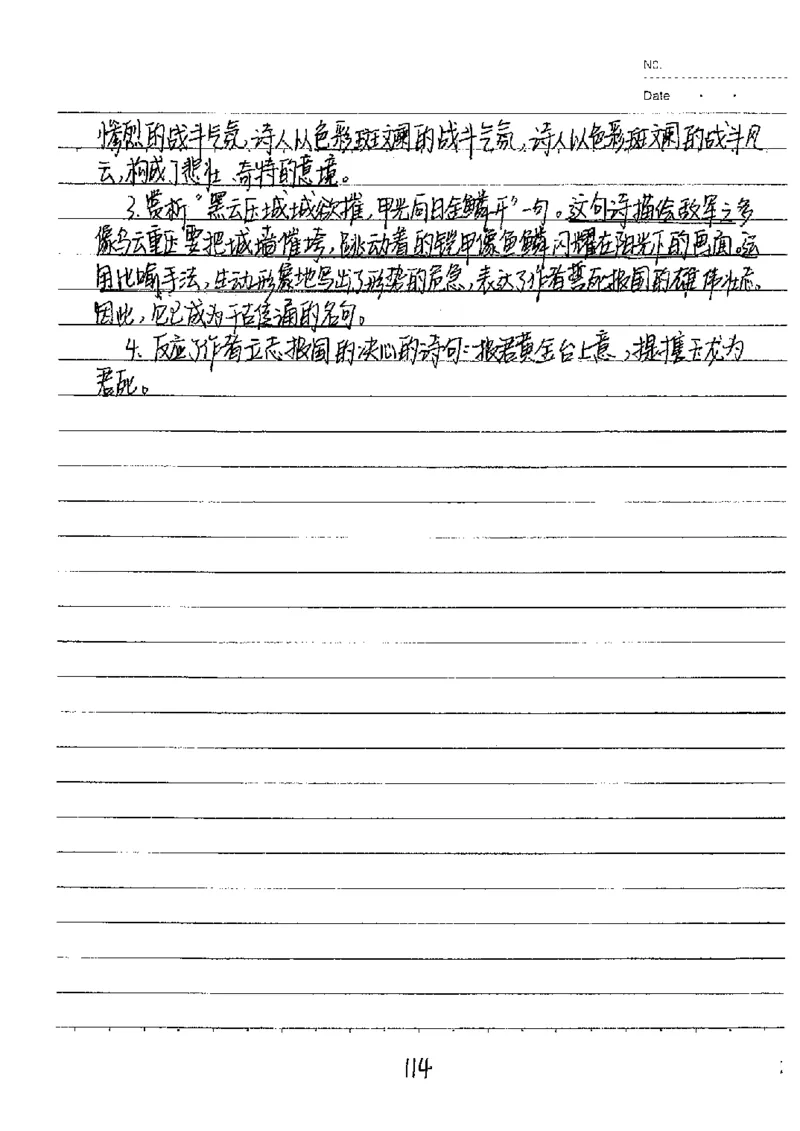 No.
Date . .
惨烈的战斗气氛,诗人以色彩斑斓的战斗气氛,诗人以色彩斑斓的战斗风
云,构成了悲壮、奇特的意境。
3.赏析"黑云压城城欲摧,甲光向日金鳞开"一句。这句诗描绘敌军之多
像乌云重压要把城墙催垮,跳动着的铠甲像鱼鳞闪耀在阳光下的画面。运
用比喻手法,生动形象地写出了形势的危急,表达了作者誓死报国的雄伟壮志。
因此,它已成为千古传诵的名句。
4、反应了作者立志报国的决心的诗句:报君黄金台上意,提携玉龙为
君死。
114